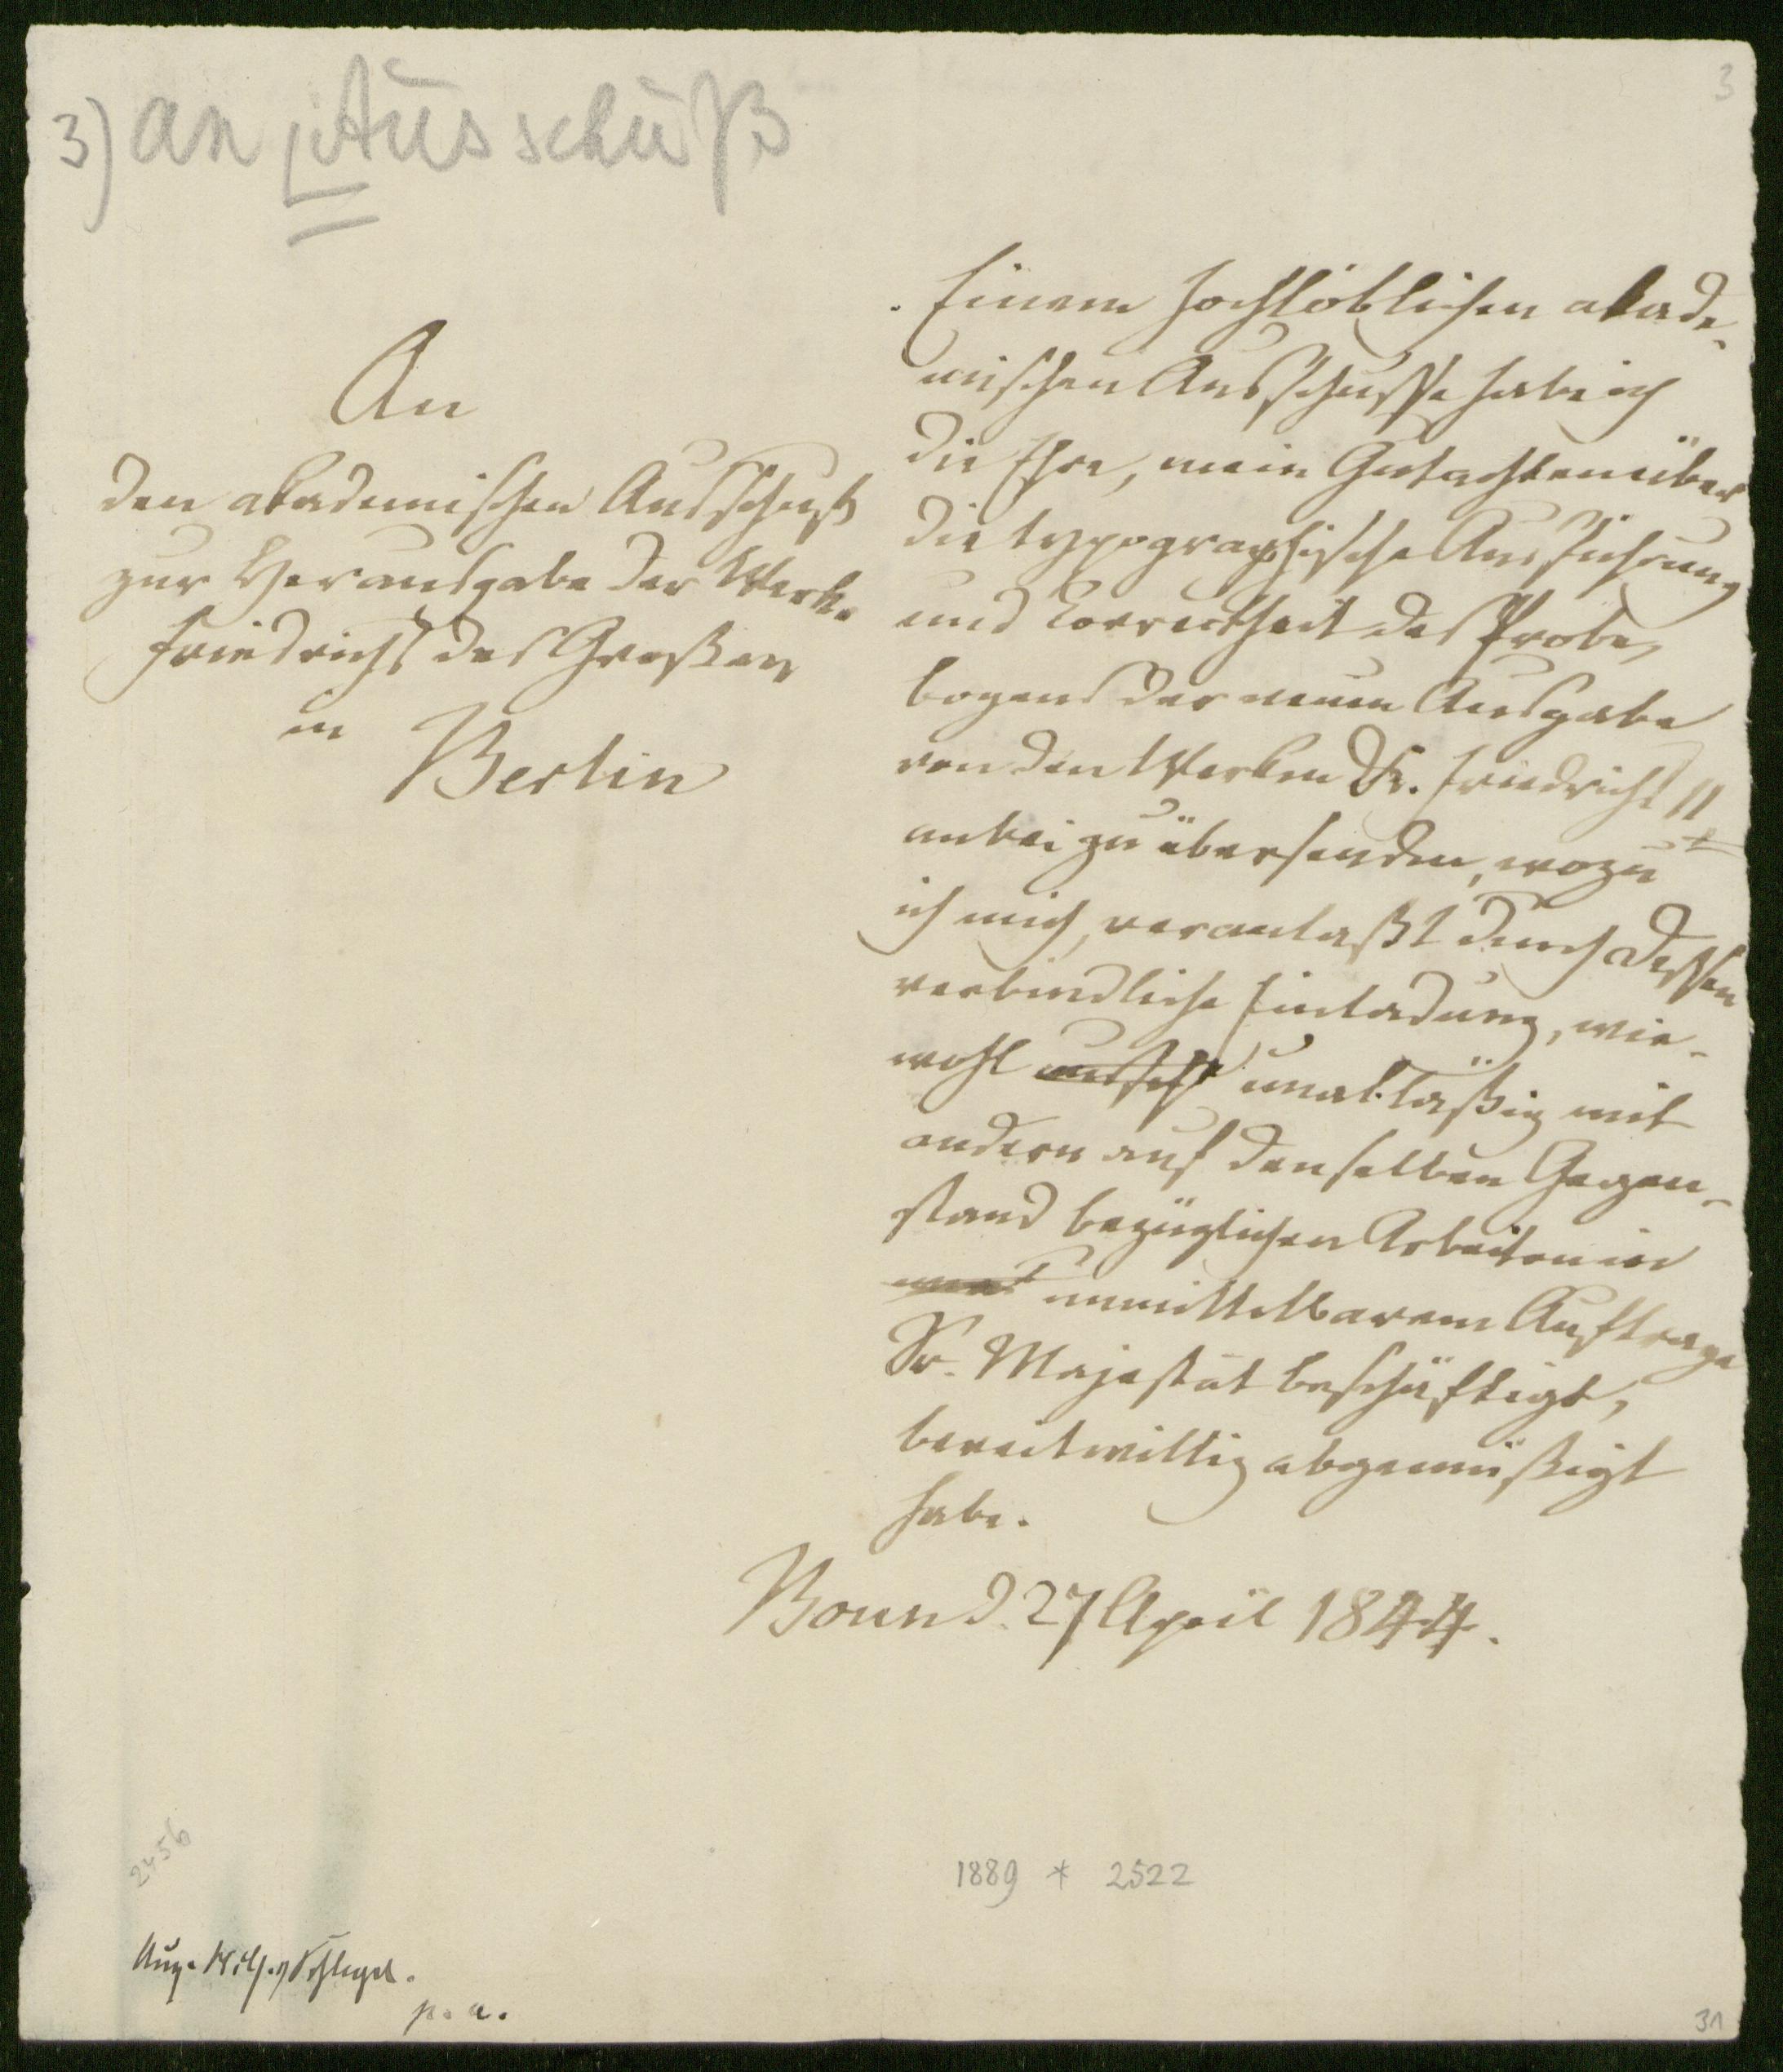 3
3) an Ausschuß
An
den akademischen Ausschuß
zur Herausgabe der Werke
Friedrichs des Großen
in
Berlin
Einem hochlöblichen akade-
mischen Ausschusse habe ich
die Ehre, mein Gutachten über
die typographische Ausführung
und Correctheit des Probe-
bogens der neuen Ausgabe
von den Werken K. Friedrichs II
anbei zu übersenden, wozu
ich mich, veranlaßt durch dessen
verbindliche Einladung, wie-
wohl unabläßig mit
andern auf denselben Gegen-
stand bezüglichen Arbeiten in
unmittelbarem Auftrage
Sr. Majestät beschäftigt,
bereitwillig abgemüßigt
habe.
Bonn d. 27 April 1844.
2456
1889 * 2522
Aug. Wilh. v Schlegel.
p. a.
31